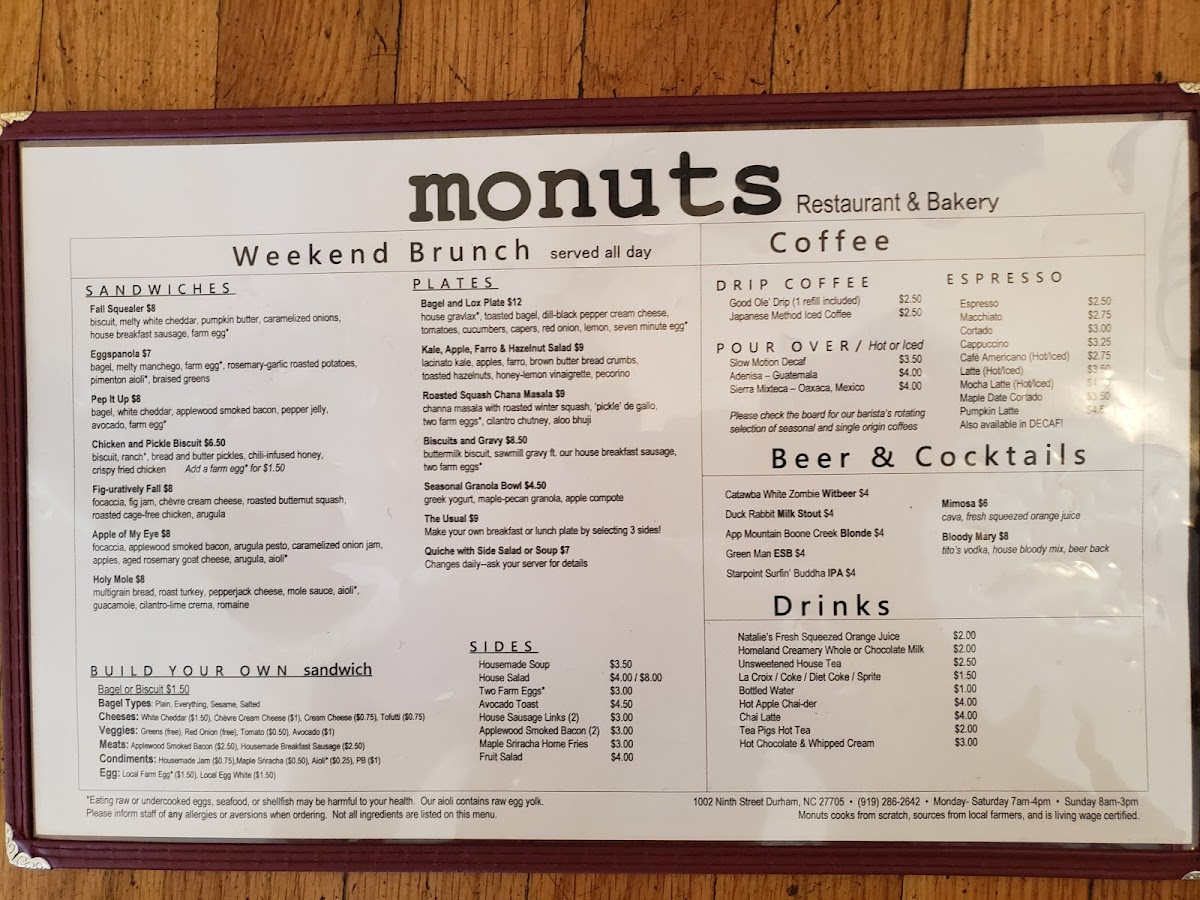 monuts Restaurant & Bakery
Weekend Brunch served all day
SANDWICHES
Fall Squealer $8
biscuit, melty white cheddar, pumpkin butter, caramelized onions,
house breakfast sausage, farm egg*
Eggspanola $7
bagel, melty manchego, farm egg*, rosemary-garlic roasted potatoes,
pimenton aioli*, braised greens
Pep It Up $8
bagel, white cheddar, applewood smoked bacon, pepper jelly,
avocado, farm egg*
Chicken and Pickle Biscuit $6.50
biscuit, ranch*, bread and butter pickles, chili-infused honey,
crispy fried chicken Add a farm egg* for $1.50
Fig-uratively Fall $8
focaccia, fig jam, chèvre cream cheese, roasted butternut squash,
roasted cage-free chicken, arugula
Apple of My Eye $8
focaccia, applewood smoked bacon, arugula pesto, caramelized onion jam,
apples, aged rosemary goat cheese, arugula, aioli*
Holy Mole $8
multigrain bread, roast turkey, pepperjack cheese, mole sauce, aioli*,
guacamole, cilantro-lime crema, romaine
BUILD YOUR OWN sandwich
Bagel or Biscuit $1.50
Bagel Types: Plain, Everything, Sesame, Salted
Cheeses: White Cheddar ($1.50), Chèvre Cream Cheese ($1), Cream Cheese ($0.75), Tofutti ($0.75)
Veggies: Greens (free), Red Onion (free), Tomato ($0.50), Avocado ($1)
Meats: Applewood Smoked Bacon ($2.50), Housemade Breakfast Sausage ($2.50)
Condiments: Housemade Jam ($0.75),Maple Sriracha ($0.50), Aioli* ($0.25), PB ($1)
Egg: Local Farm Egg* ($1.50), Local Egg White ($1.50)
PLATES
Bagel and Lox Plate $12
house gravlax*, toasted bagel, dill-black pepper cream cheese,
tomatoes, cucumbers, capers, red onion, lemon, seven minute egg*
Kale, Apple, Farro & Hazelnut Salad $9
lacinato kale, apples, farro, brown butter bread crumbs,
toasted hazelnuts, honey-lemon vinaigrette, pecorino
Roasted Squash Chana Masala $9
channa masala with roasted winter squash, 'pickle' de gallo,
two farm eggs*, cilantro chutney, aloo bhuji
Biscuits and Gravy $8.50
buttermilk biscuit, sawmill gravy ft. our house breakfast sausage,
two farm eggs*
Seasonal Granola Bowl $4.50
greek yogurt, maple-pecan granola, apple compote
The Usual $9
Make your own breakfast or lunch plate by selecting 3 sides!
Quiche with Side Salad or Soup $7
Changes daily--ask your server for details
SIDES
Housemade Soup $3.50
House Salad $4.00 / $8.00
Two Farm Eggs* $3.00
Avocado Toast $4.50
House Sausage Links (2) $3.00
Applewood Smoked Bacon (2) $3.00
Maple Sriracha Home Fries $3.00
Fruit Salad $4.00
Coffee
DRIP COFFEE
Good Ole' Drip (1 refill included) $2.50
Japanese Method Iced Coffee $2.50
POUR OVER/ Hot or Iced
Slow Motion Decaf $3.50
Adenisa – Guatemala $4.00
Sierra Mixteca – Oaxaca, Mexico $4.00
Please check the board for our barista's rotating
selection of seasonal and single origin coffees
ESPRESSO
Espresso $2.50
Macchiato $2.75
Cortado $3.00
Cappuccino $3.25
Café Americano (Hot/Iced) $2.75
Latte (Hot/Iced)
Mocha Latte (Hot/Iced)
Maple Date Cortado $3.50
Pumpkin Latte
Also available in DECAF!
Beer & Cocktails
Catawba White Zombie Witbeer $4
Duck Rabbit Milk Stout $4
App Mountain Boone Creek Blonde $4
Green Man ESB $4
Starpoint Surfin' Buddha IPA $4
Mimosa $6
cava, fresh squeezed orange juice
Bloody Mary $8
tito's vodka, house bloody mix, beer back
Drinks
Natalie's Fresh Squeezed Orange Juice $2.00
Homeland Creamery Whole or Chocolate Milk $2.00
Unsweetened House Tea $2.50
La Croix / Coke / Diet Coke / Sprite $1.50
Bottled Water $1.00
Hot Apple Chai-der $4.00
Chai Latte $4.00
Tea Pigs Hot Tea $2.00
Hot Chocolate & Whipped Cream $3.00
*Eating raw or undercooked eggs, seafood, or shellfish may be harmful to your health. Our aioli contains raw egg yolk.
Please inform staff of any allergies or aversions when ordering. Not all ingredients are listed on this menu.
1002 Ninth Street Durham, NC 27705 • (919) 286-2642 • Monday- Saturday 7am-4pm • Sunday 8am-3pm
Monuts cooks from scratch, sources from local farmers, and is living wage certified.